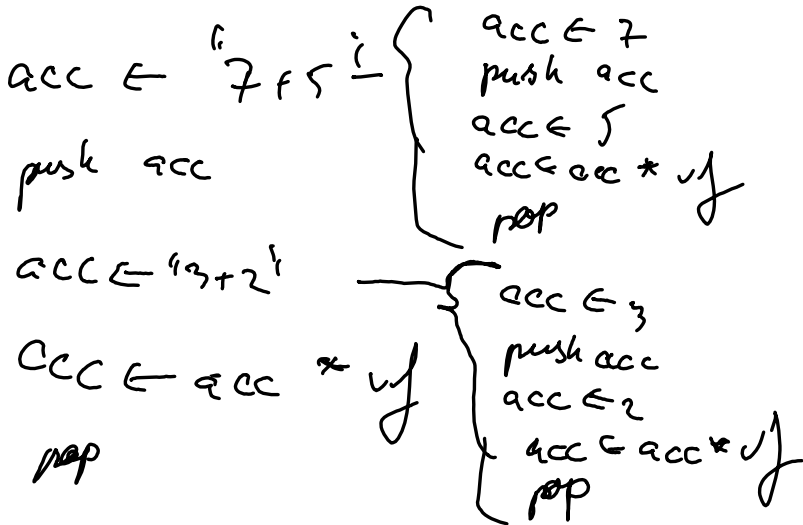 acc ← "7+5"
push acc
acc ← "3+2"
acc ← acc * vf
pop
acc ← 7
push acc
acc ← 5
acc ← acc * vf
pop
acc ← 3
push acc
acc ← 2
acc ← acc * vf
pop